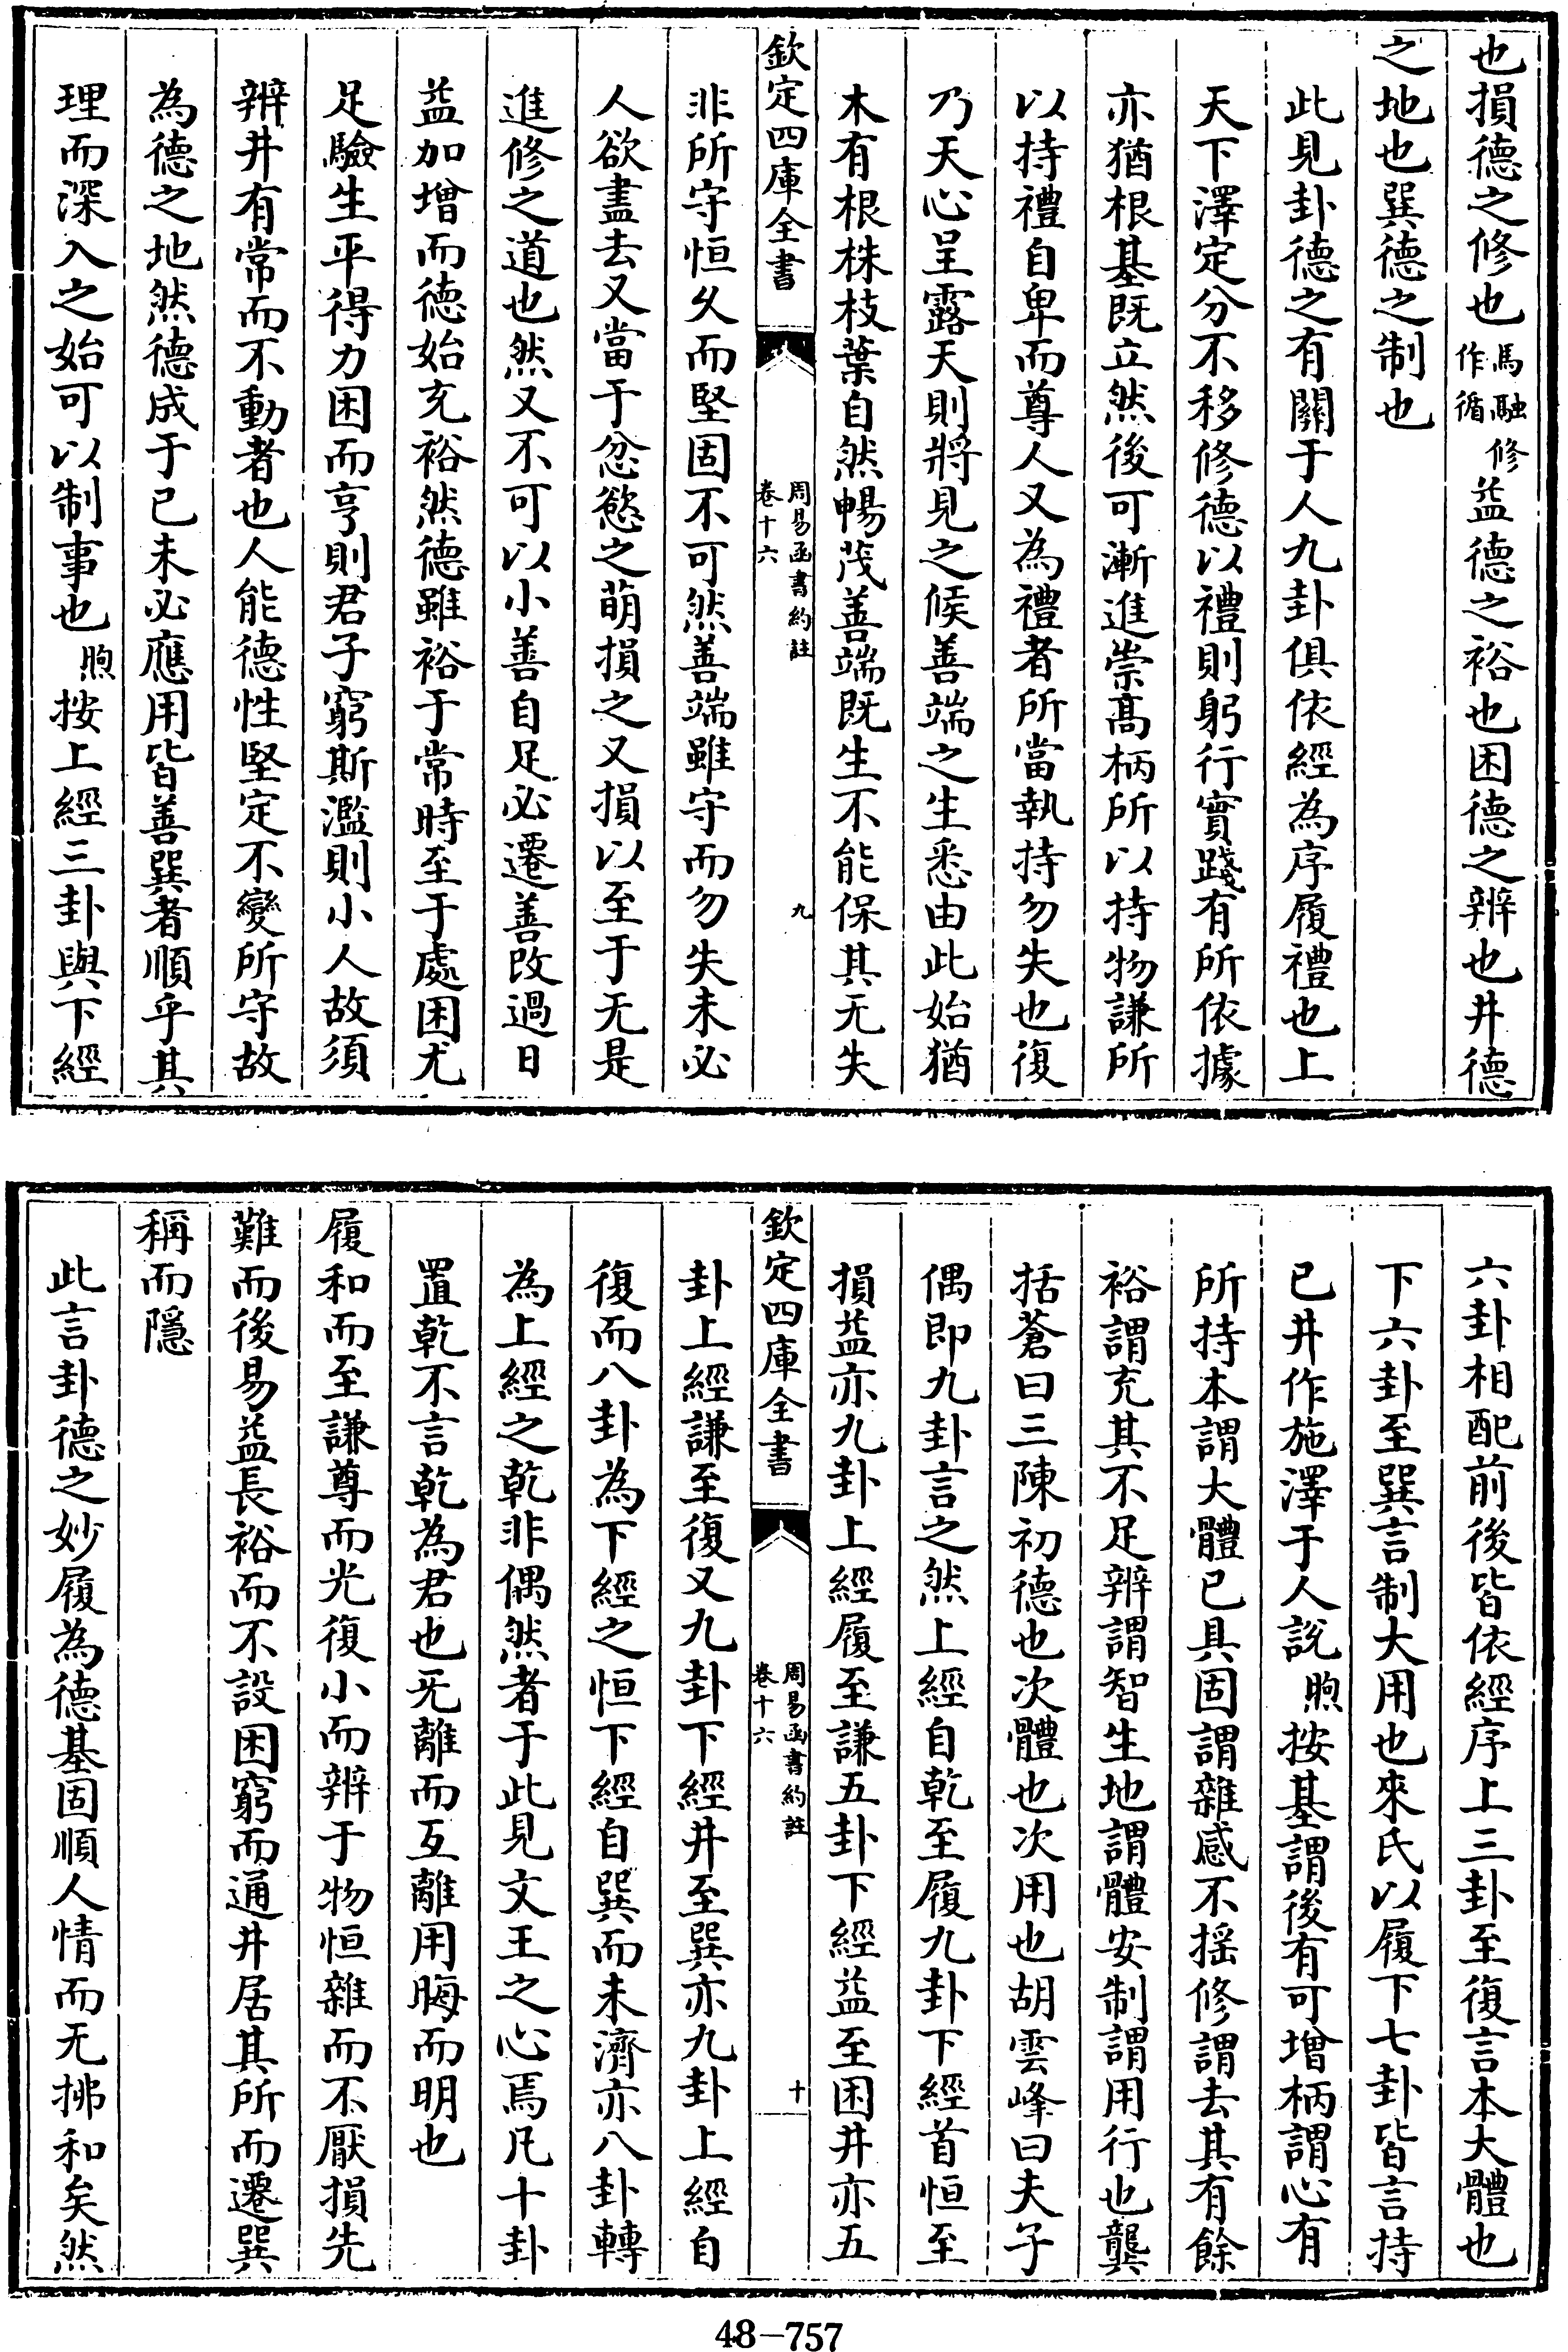 也損德之修也馬融修作循益德之裕也困德之辨也井德
之地也巽德之制也
此見卦德之有關于人九卦俱依經為序履禮也上
天下澤定分不移修德以禮則躬行實踐有所依據
亦猶根基既立然後可漸進崇高柄所以持物謙所
以持禮自卑而尊人又為禮者所當執持勿失也復
乃天心呈露天則將見之候善端之生悉由此始猶
木有根株枝葉自然暢茂善端既生不能保其无失
欽定四庫全書
周易函書約註
卷十六
九
非所守恒久而堅固不可然善端雖守而勿失未必
人欲盡去又當于忿慾之萌損之又損以至于无是
進修之道也然又不可以小善自足必遷善改過日
益加增而德始充裕然德雖裕于常時至于處困尤
足驗生平得力困而亨則君子窮斯濫則小人故須
辨井有常而不動者也人能德性堅定不變所守故
為德之地然德成于已未必應用皆善巽者順乎其
理而深入之始可以制事也煦按上經三卦與下經
六卦相配前後皆依經序上三卦至復言本大體也
下六卦至巽言制大用也來氏以履下七卦皆言持
已井作施澤于人說煦按基謂後有可增柄謂心有
所持本謂大體已具固謂雜感不搖修謂去其有餘
裕謂充其不足辨謂智生地謂體安制謂用行也龔
括蒼曰三陳初德也次體也次用也胡雲峰曰夫子
偶即九卦言之然上經自乾至履九卦下經首恒至
損益亦九卦上經履至謙五卦下經益至困井亦五
欽定四庫全書
周易函書約註
卷十六
十
卦上經謙至復又九卦下經井至巽亦九卦上經自
復而八卦為下經之恒下經自巽而未濟亦八卦轉
為上經之乾非偶然者于此見文王之心焉凡十卦
置乾不言乾為君也旡離而互離用晦而明也
履和而至謙尊而光復小而辨于物恒雜而不厭損先
難而後易益長裕而不設困窮而通井居其所而遷巽
稱而隱
此言卦德之妙履為德基固順人情而无拂和矣然
48-757